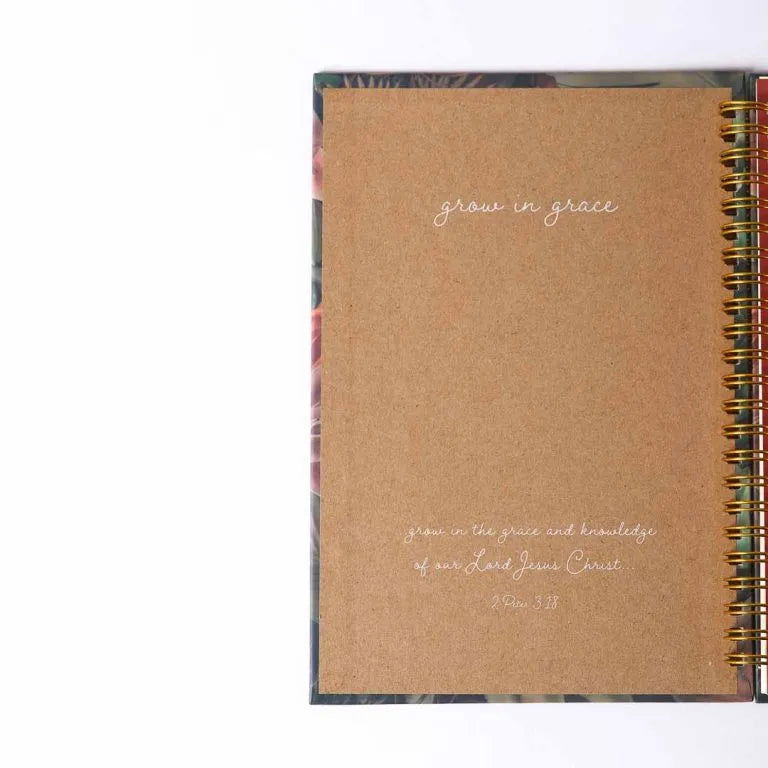 grow in grace
grow in the grace and knowledge
of our Lord Jesus Christ...
2 Peter 3:18